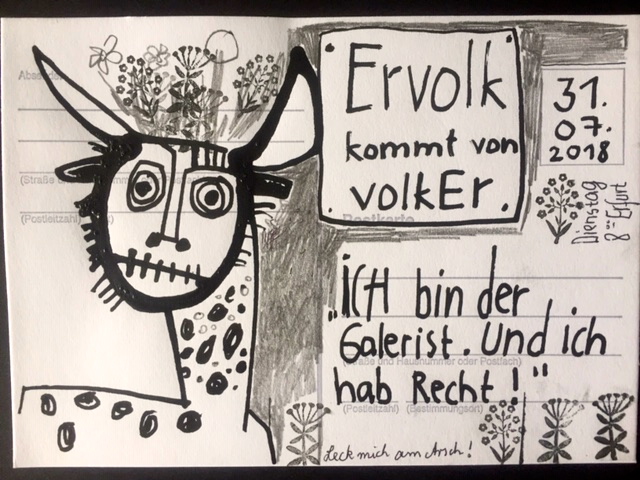 Ervolk
kommt von
volkEr.
31.
07.
2018
Dienstag
8:00 Erfurt
Postkarte
(Postleitzahl)
„ICH bin der
Galerist. Und ich
(Straße und Hausnummer oder Postfach)
hab Recht!"
(Postleitzahl) (Bestimmungsort)
Leck mich am Arsch!